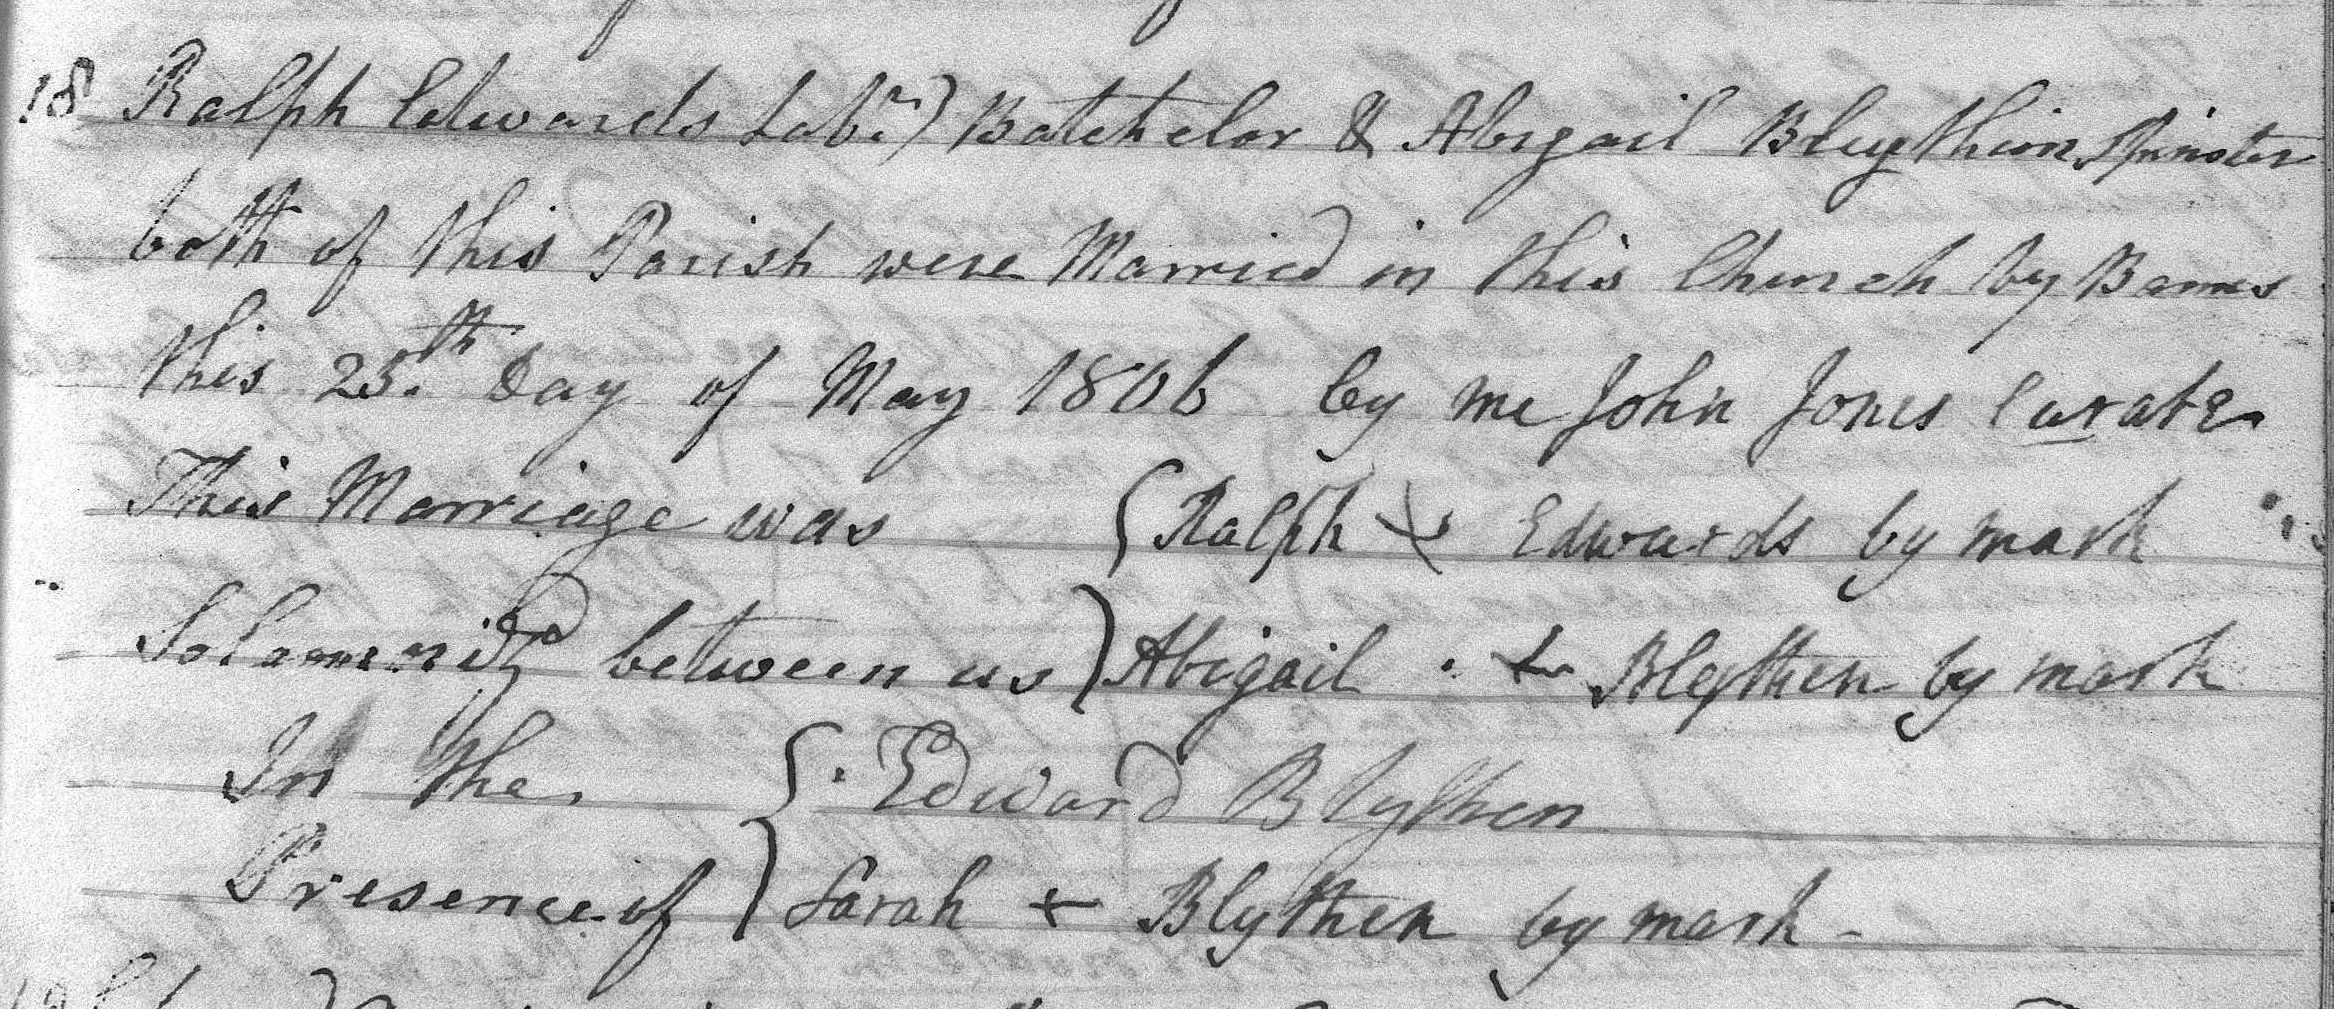 18 Ralph Edwards Labr.) Batchelor & Abigail Bleythin Spinster
both of this Parish were Married in this Church by Banns
this 25.th Day of May 1806 by me John Jones Curate
This Marriage was { Ralph + Edwards by mark
Solemnizd between us } Abigail + Bleythen by mark
In the { Edward Blythen
Presence of } Sarah + Blythen by mark